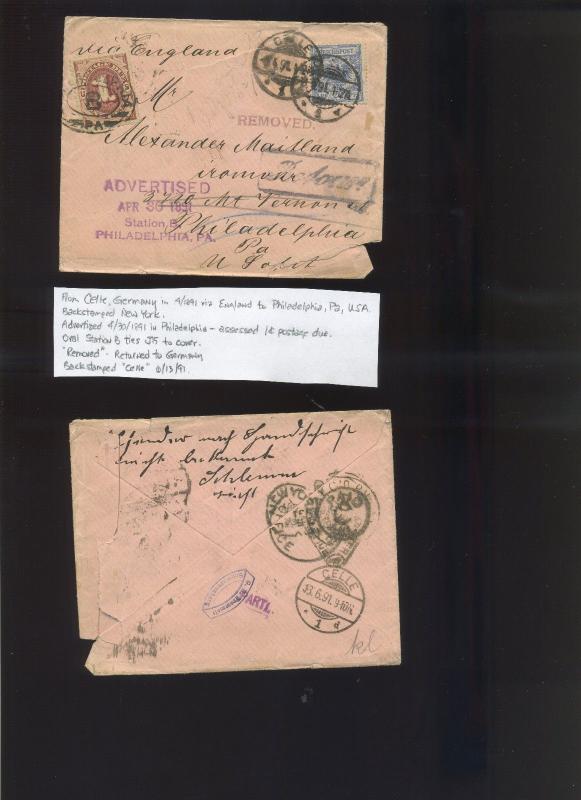 via England
CELLE
REICHSPOST
PA.
Mr
REMOVED.
Alexander Maitland
ADVERTISED
APR 30 1891
3770 Mt Vernon st
Station B,
Philadelphia
PHILADELPHIA, PA.
Pa
From Celle, Germany in 4/1891 via England to Philadelphia, Pa, USA.
Backstamped New York.
Advertized 4/30/1891 in Philadelphia - assessed 1¢ postage due.
Oval Station B ties J15 to cover.
"Removed" - Returned to Germany
Backstamped "Celle" 6/13/91.
nach Handschrift
nicht bekannt
NEW YORK
CELLE
13.6.91. 9-10V.
* 1 d
ARTL.
kl